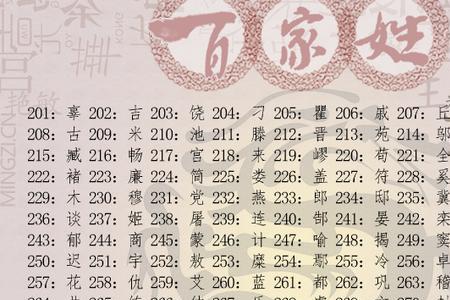 百家姓
201：辜 202：吉 203：饶 204：刁 205：瞿 206：戚 207：丘
208：古 209：米 210：池 211：滕 212：晋 213：苑 214：邬
215：臧 216：畅 217：宫 218：来 219：嵺 220：苟 221：全
222：褚 223：廉 224：简 225：娄 226：盖 227：符 228：奚
229：木 230：穆 231：党 232：燕 233：郎 234：邸 235：冀
236：谈 237：姬 238：屠 239：连 240：郜 241：晏 242：栾
243：郁 244：商 245：蒙 246：计 247：喻 248：揭 249：窦
250：迟 251：宇 252：敖 253：糜 254：鄢 255：冷 256：卓
257：花 258：仇 259：艾 260：蓝 261：都 262：巩 263：稽